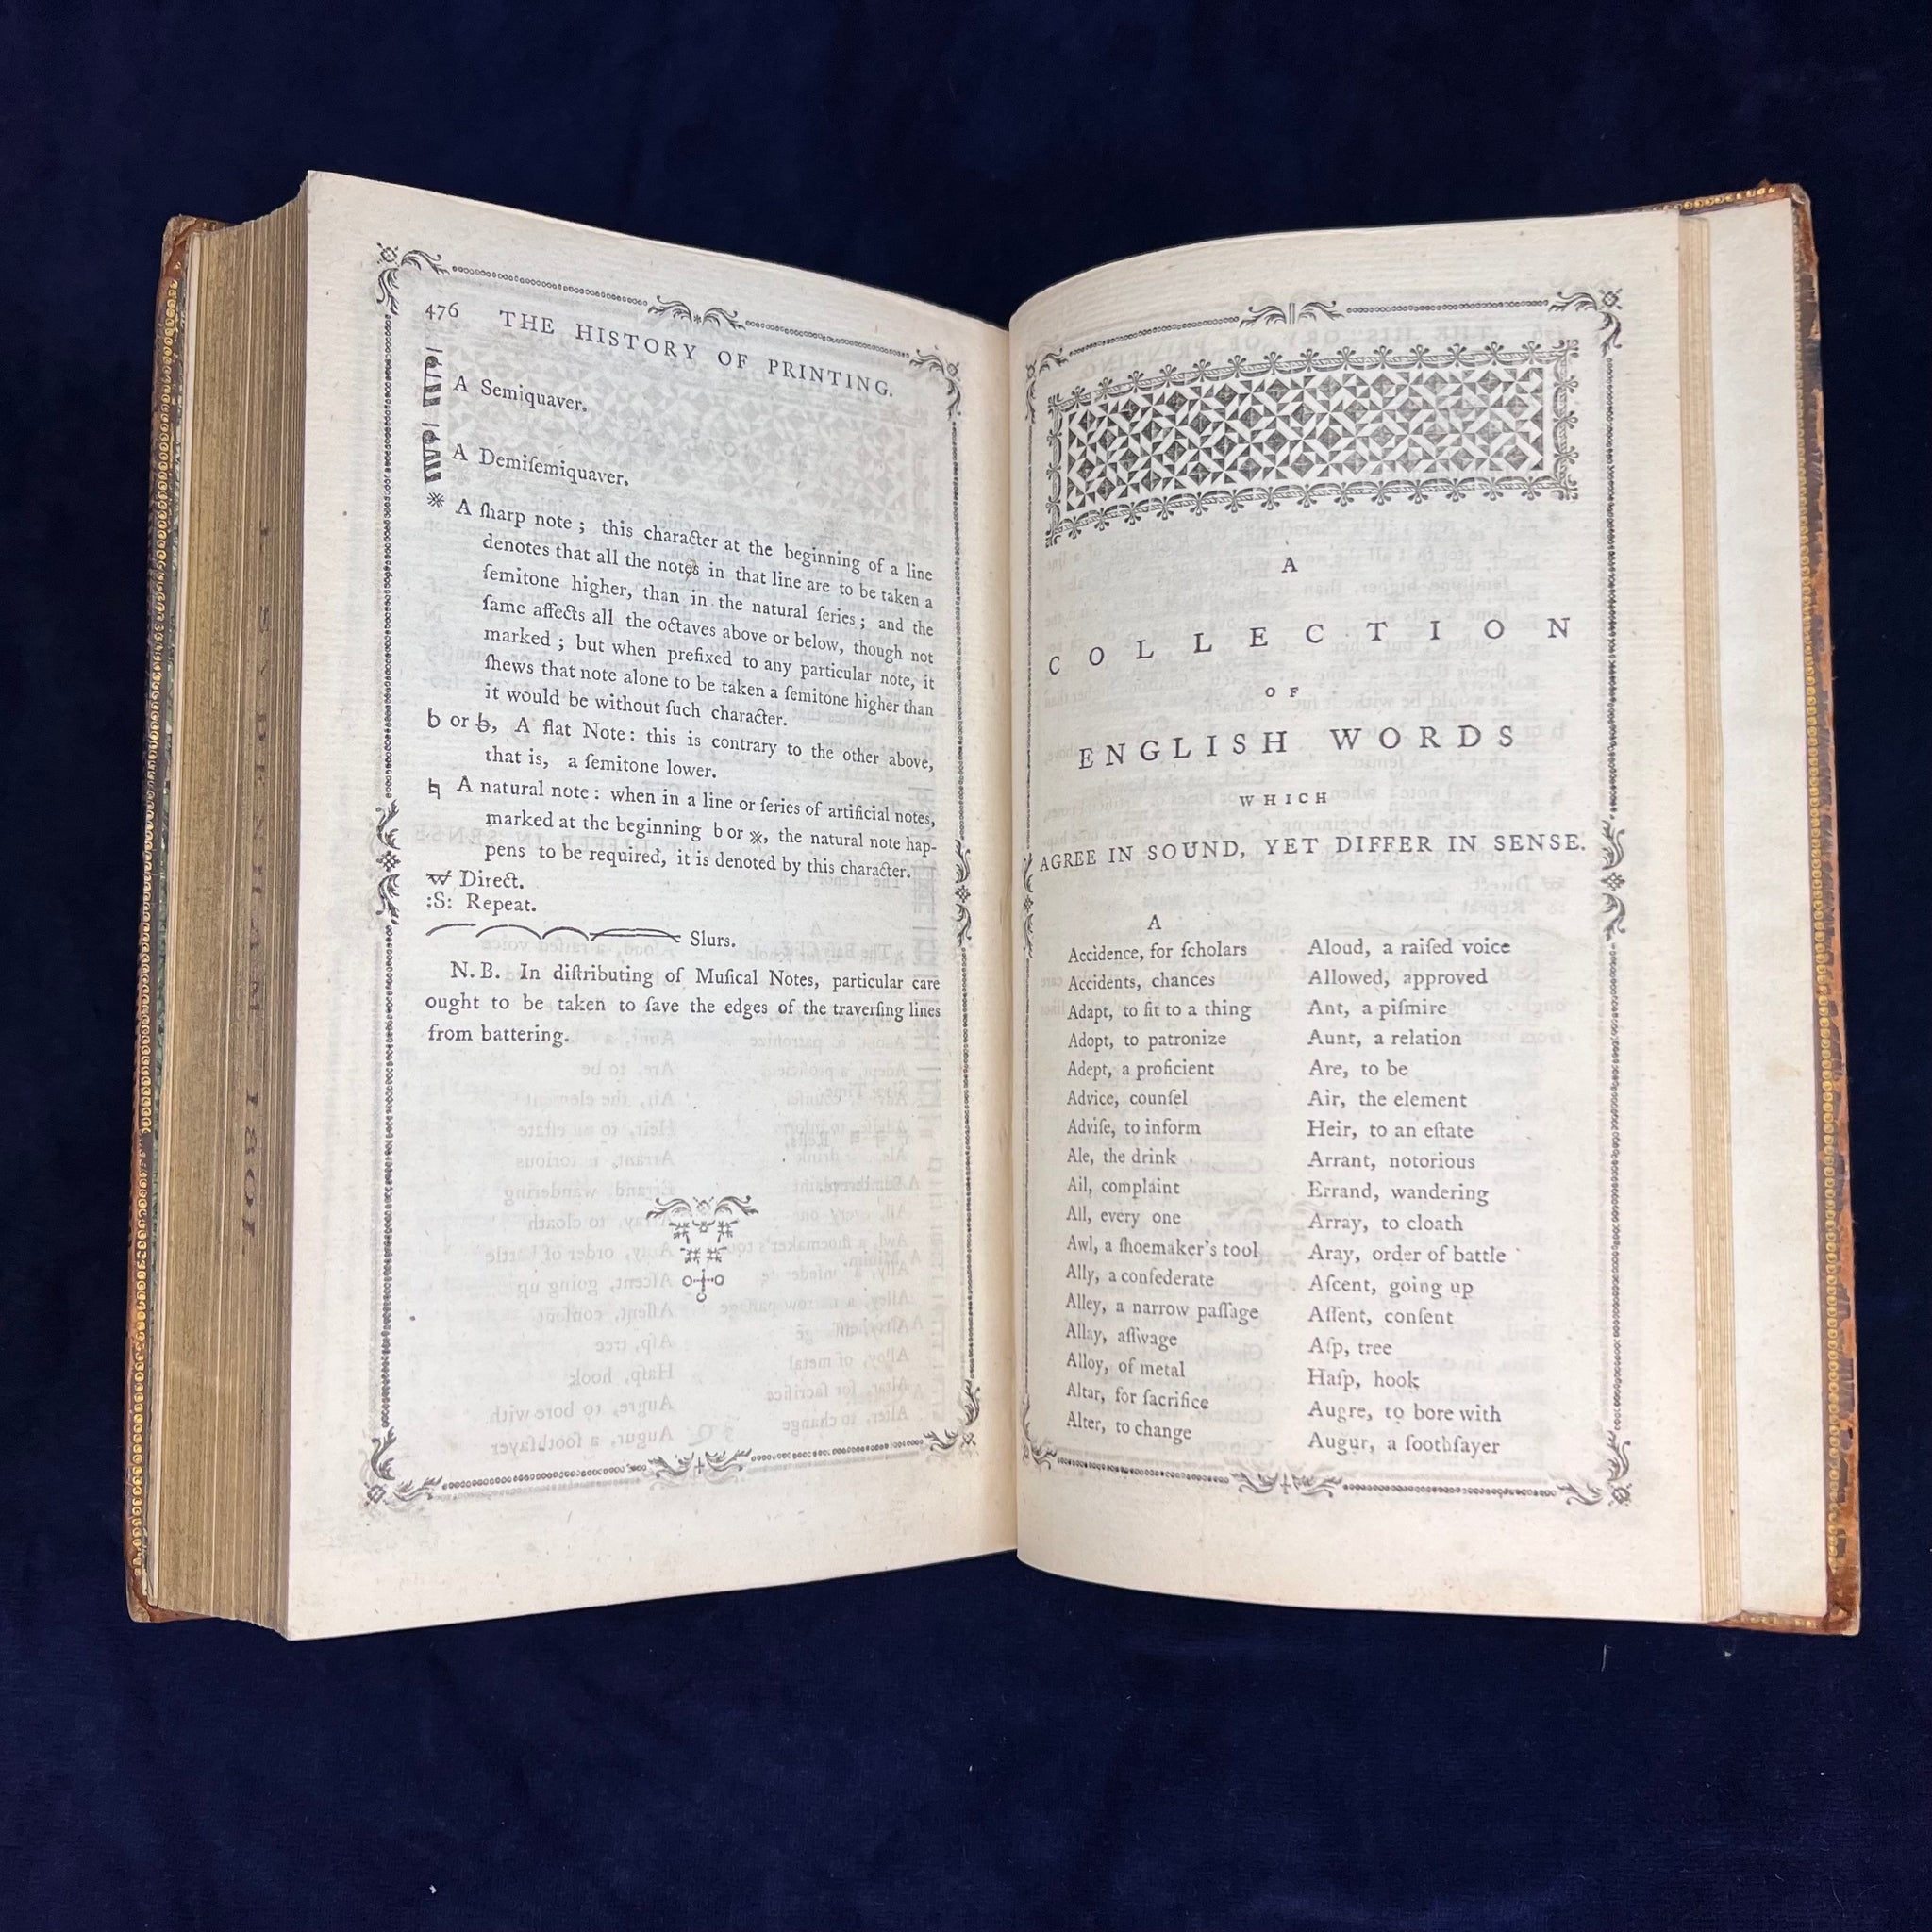 476 THE HISTORY OF PRINTING.
A Semiquaver.
A Demiſemiquaver.
※ A ſharp note ; this character at the beginning of a line
denotes that all the notes in that line are to be taken a
ſemitone higher, than in the natural ſeries ; and the
ſame affects all the octaves above or below, though not
marked ; but when prefixed to any particular note, it
ſhews that note alone to be taken a ſemitone higher than
it would be without ſuch character.
b or b, A flat Note : this is contrary to the other above,
that is, a ſemitone lower.
♮ A natural note : when in a line or ſeries of artificial notes,
marked at the beginning b or ※, the natural note hap-
pens to be required, it is denoted by this character.
Direct.
:S: Repeat.
Slurs.
N. B. In diſtributing of Muſical Notes, particular care
ought to be taken to ſave the edges of the traverſing lines
from battering.
A
COLLECTION
OF
ENGLISH WORDS
WHICH
AGREE IN SOUND, YET DIFFER IN SENSE.
A
Accidence, for ſcholars
Accidents, chances
Adapt, to fit to a thing
Adopt, to patronize
Adept, a proficient
Advice, counſel
Adviſe, to inform
Ale, the drink
Ail, complaint
All, every one
Awl, a ſhoemaker's tool
Ally, a confederate
Alley, a narrow paſſage
Allay, aſſwage
Alloy, of metal
Altar, for ſacrifice
Alter, to change
Aloud, a raiſed voice
Allowed, approved
Ant, a piſmire
Aunt, a relation
Are, to be
Air, the element
Heir, to an eſtate
Arrant, notorious
Errand, wandering
Array, to cloath
Aray, order of battle
Aſcent, going up
Aſſent, conſent
Aſp, tree
Haſp, hook
Augre, to bore with
Augur, a ſoothſayer